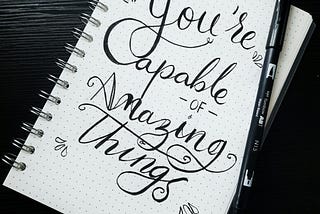 You're
Capable
-OF-
Amazing
Things